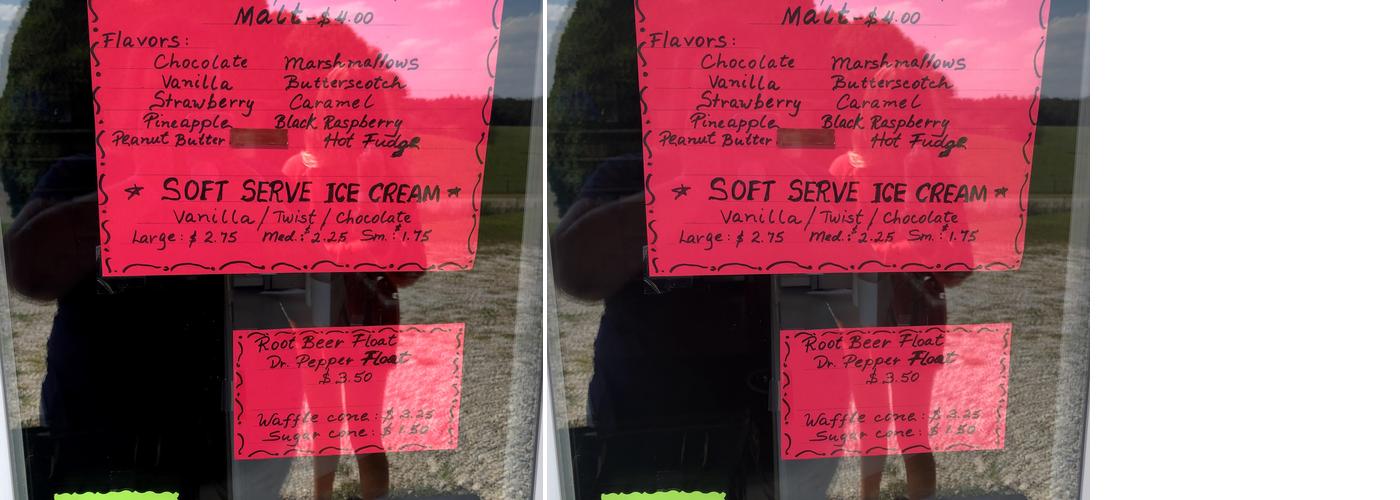 Malt-$4.00
Flavors:
Chocolate Marshmallows
Vanilla Butterscotch
Strawberry Caramel
Pineapple Black Raspberry
Peanut Butter Hot Fudge
SOFT SERVE ICE CREAM
Vanilla/Twist/Chocolate
Large: $2.75 Med.: $2.25 Sm.: $1.75
Root Beer Float
Dr. Pepper Float
$3.50
Waffle cone: $3.25
Sugar cone: $1.50
Malt-$4.00
Flavors:
Chocolate Marshmallows
Vanilla Butterscotch
Strawberry Caramel
Pineapple Black Raspberry
Peanut Butter Hot Fudge
SOFT SERVE ICE CREAM
Vanilla/Twist/Chocolate
Large: $2.75 Med.: $2.25 Sm.: $1.75
Root Beer Float
Dr. Pepper Float
$3.50
Waffle cone: $3.25
Sugar cone: $1.50